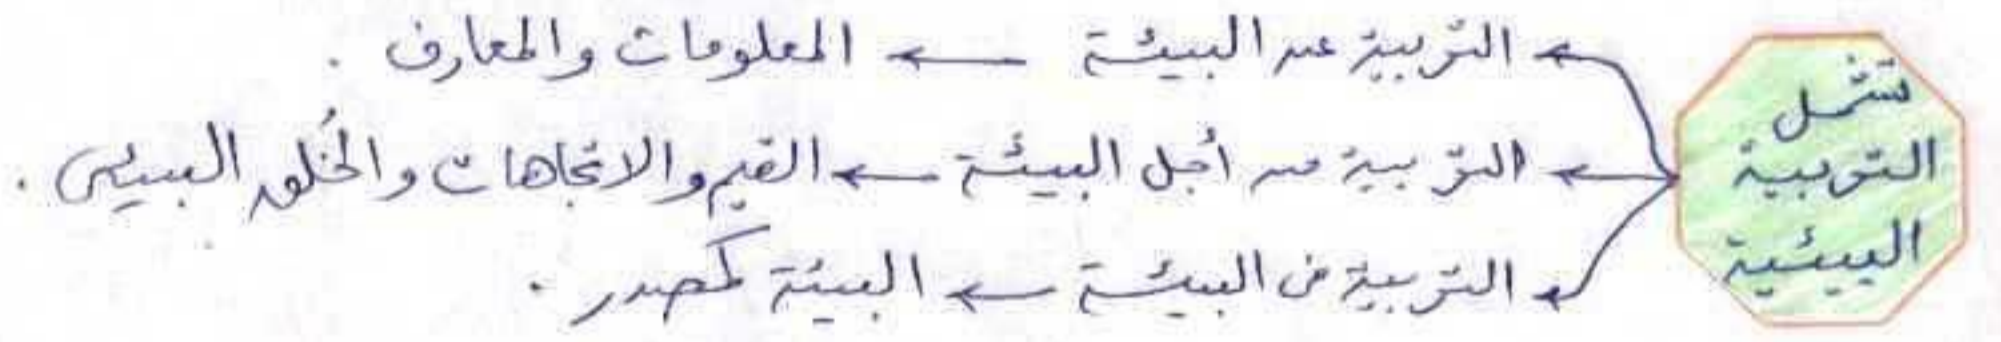 تشمل
التربية
البيئية
التربية عن البيئة ← المعلومات والمعارف .
التربية من أجل البيئة ← القيم والاتجاهات والخُلق البيئي .
التربية في البيئة ← البيئة كمصدر .